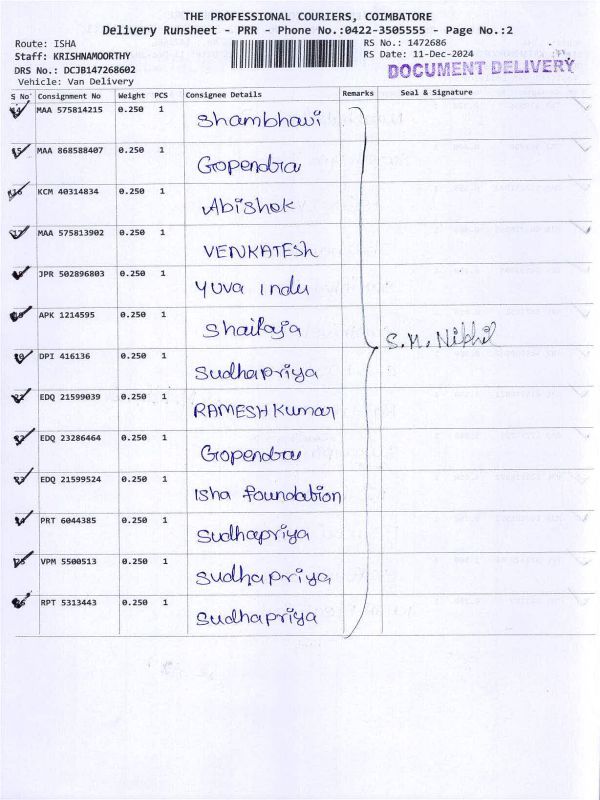 THE PROFESSIONAL COURIERS, COIMBATORE
Delivery Runsheet - PRR - Phone No.:0422-3505555 - Page No.:2
Route: ISHA
Staff: KRISHNAMOORTHY
DRS No.: DCJB147268602
Vehicle: Van Delivery
RS No.: 1472686
RS Date: 11-Dec-2024
DOCUMENT DELIVERY
S No Consignment No Weight PCS Consignee Details Remarks Seal & Signature
14 MAA 575814215 0.250 1 Shambhavi
15 MAA 868588407 0.250 1 Gopendra
16 KCM 40314834 0.250 1 Abishek
17 MAA 575813902 0.250 1 VENKATESh
JPR 502896803 0.250 1 Yuva Indu
APK 1214595 0.250 1 Shailaja
DPI 416136 0.250 1 Sudhapriya
S.M. Nikhil
EDQ 21599039 0.250 1 RAMESH Kumar
EDQ 23286464 0.250 1 Gopendra
EDQ 21599524 0.250 1 Isha foundation
PRT 6044385 0.250 1 Sudhapriya
VPM 5500513 0.250 1 Sudhapriya
RPT 5313443 0.250 1 Sudhapriya